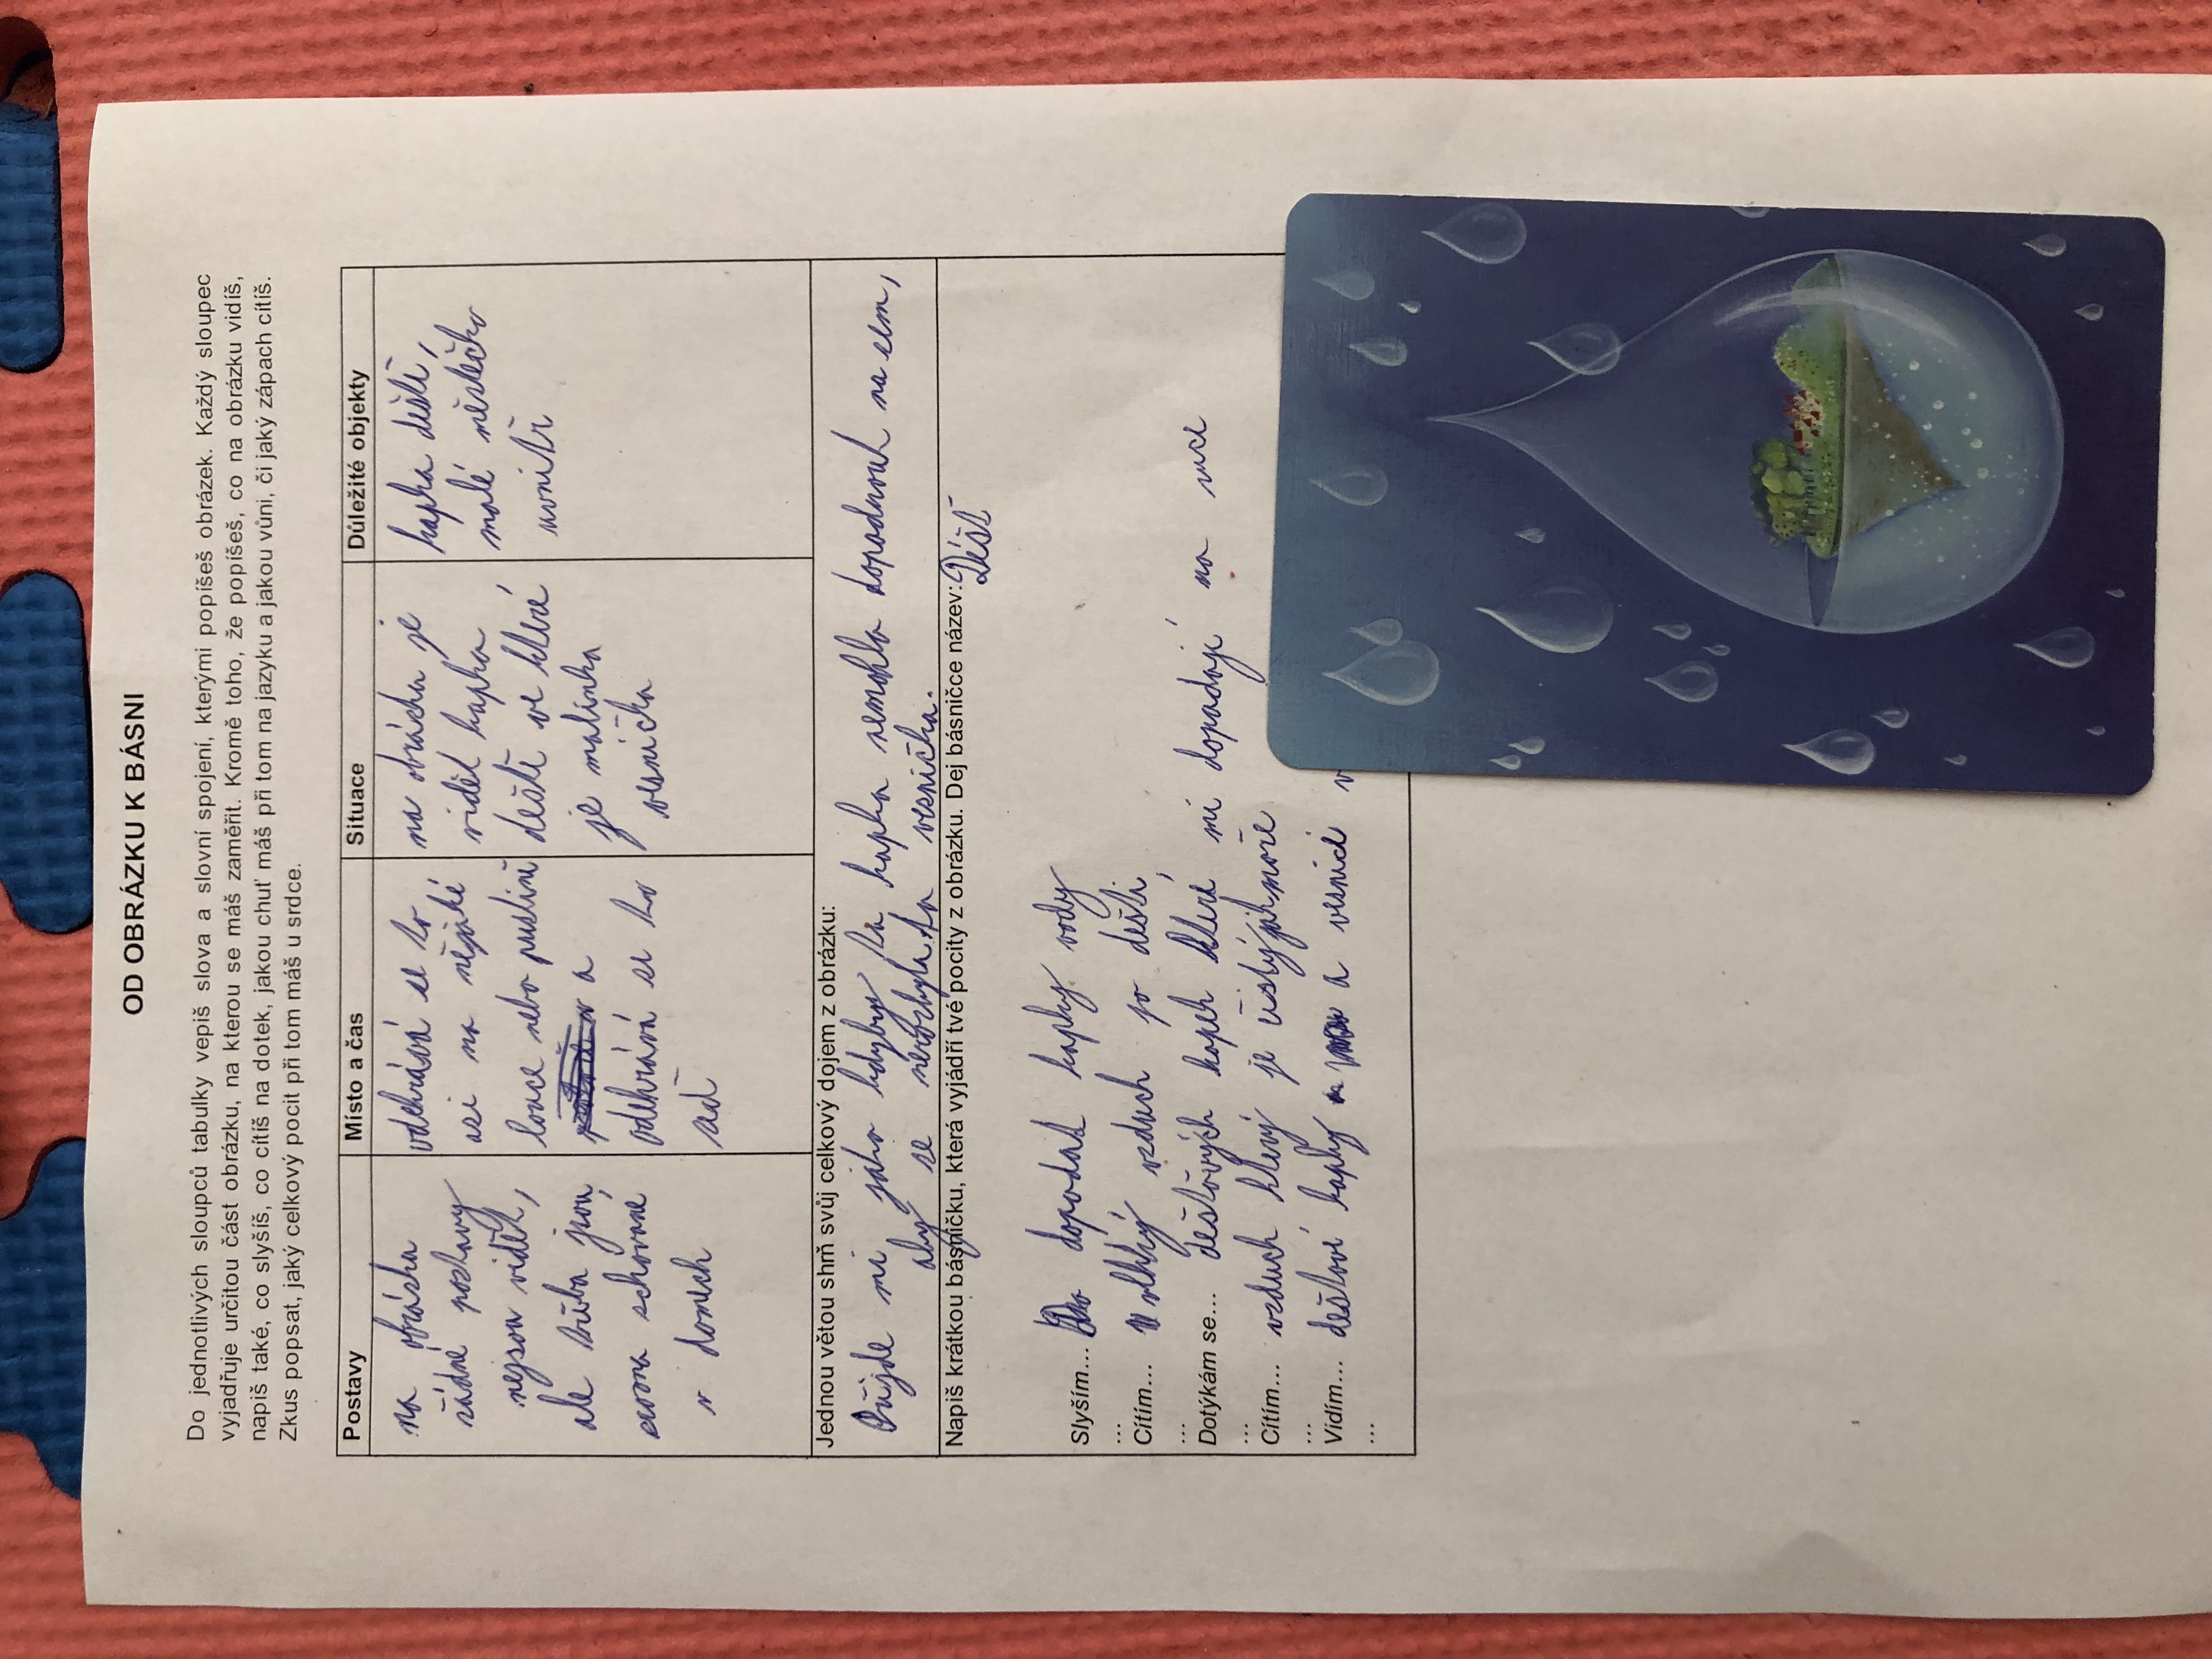 OD OBRÁZKU K BÁSNI
Do jednotlivých sloupců tabulky vepiš slova a slovní spojení, kterými popíšeš obrázek. Každý sloupec
vyjadřuje určitou část obrázku, na kterou se máš zaměřit. Kromě toho, že popíšeš, co na obrázku vidíš,
napiš také, co slyšíš, co cítíš na dotek, jakou chuť máš při tom na jazyku a jakou vůni, či jaký zápach cítíš.
Zkus popsat, jaký celkový pocit při tom máš u srdce.
Postavy
na obrásku
žádné postavy
nejsou vidět,
ale třeba jsou
zrovna schované
v domech
Místo a čas
odehrává se to
asi na nějaké
louce nebo pustině
a
odehrává se to
teď
Situace
na obrásku je
vidět kapka
deště ve které
je malinka
vesnička
Důležité objekty
kapka deště,
malé městečko
uvnitř
Jednou větou shrň svůj celkový dojem z obrázku:
Přijde mi jako kdyby ta kapka nemohla dopadnout na zem,
aby se nerozbyla ta vesnička.
Napiš krátkou básničku, která vyjádří tvé pocity z obrázku. Dej básničce název: Déšť
Slyším... dopadat kapky vody
...
Cítím... vlhký vzduch po dešti
...
Dotýkám se... dešťových kapek které mi dopadají na ruce
...
Cítím... vzduch který je čistý jak moře
...
Vidím... dešťové kapky a vesnici v
...